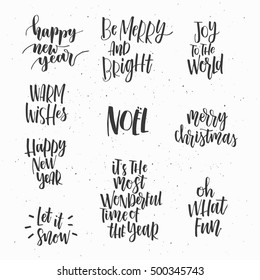 happy
new
year
Be MeRRY
AND
BRigHt
JoY
to tHe
WoRld
WARM
WisHes
NOËL
meRRy
cHRistmas
HAppy
New
YeAR
it's tHe
most
WoNdeRful
time of
tHe YeaR
oH
WHat
FuN
Let it
SNoW
www.shutterstock.com · 500345743